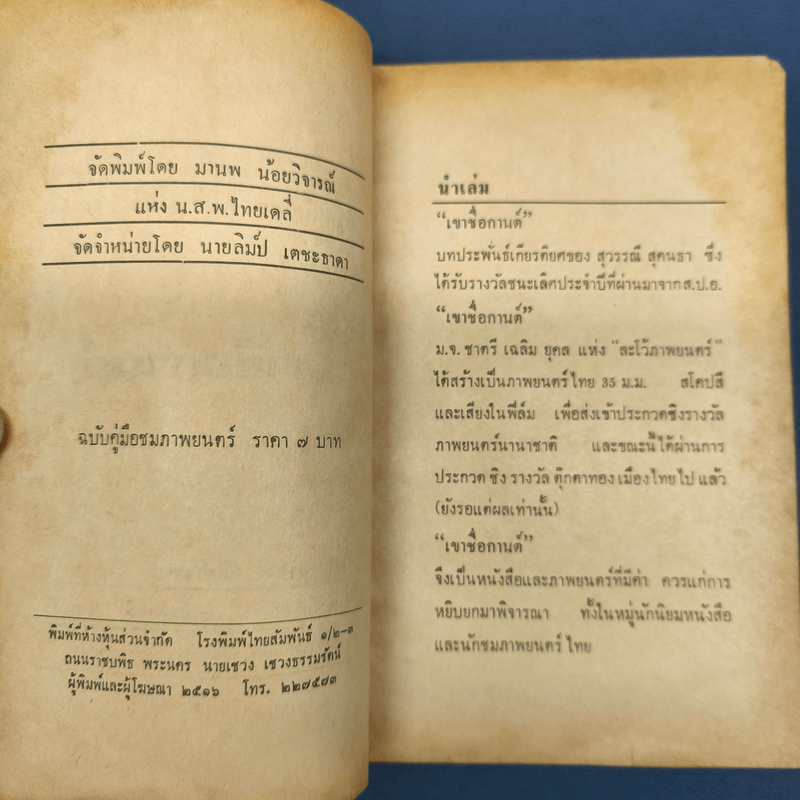 จัดพิมพ์โดย มานพ น้อยวิจารณ์
แห่ง น.ส.พ.ไทยเดลี่
จัดจำหน่ายโดย นายลิมป์ เตชะธาดา
ฉบับคู่มือชมภาพยนตร์ ราคา ๗ บาท
พิมพ์ที่ห้างหุ้นส่วนจำกัด โรงพิมพ์ไทยสัมพันธ์ ๑/๒–๓
ถนนราชบพิธ พระนคร นายเชวง เชวงธรรมรัตน์
ผู้พิมพ์และผู้โฆษณา ๒๕๑๖ โทร. ๒๒๗๕๗๓
นำเล่ม
“เขาชื่อกานต์”
บทประพันธ์เกียรติยศของ สุวรรณี สุคนธา ซึ่ง
ได้รับรางวัลชนะเลิศประจำปีที่ผ่านมาจากส.ป.อ.
“เขาชื่อกานต์”
ม.จ. ชาตรี เฉลิม ยุคล แห่ง “ละโว้ภาพยนตร์”
ได้สร้างเป็นภาพยนตร์ไทย 35 ม.ม. สโคปสี
และเสียงในฟิล์ม เพื่อส่งเข้าประกวดชิงรางวัล
ภาพยนตร์นานาชาติ และขณะนี้ได้ผ่านการ
ประกวด ชิง รางวัล ตุ๊กตาทอง เมืองไทยไป แล้ว
(ยังรอแต่ผลเท่านั้น)
“เขาชื่อกานต์”
จึงเป็นหนังสือและภาพยนตร์ที่มีค่า ควรแก่การ
หยิบยกมาพิจารณา ทั้งในหมู่นักนิยมหนังสือ
และนักชมภาพยนตร์ ไทย